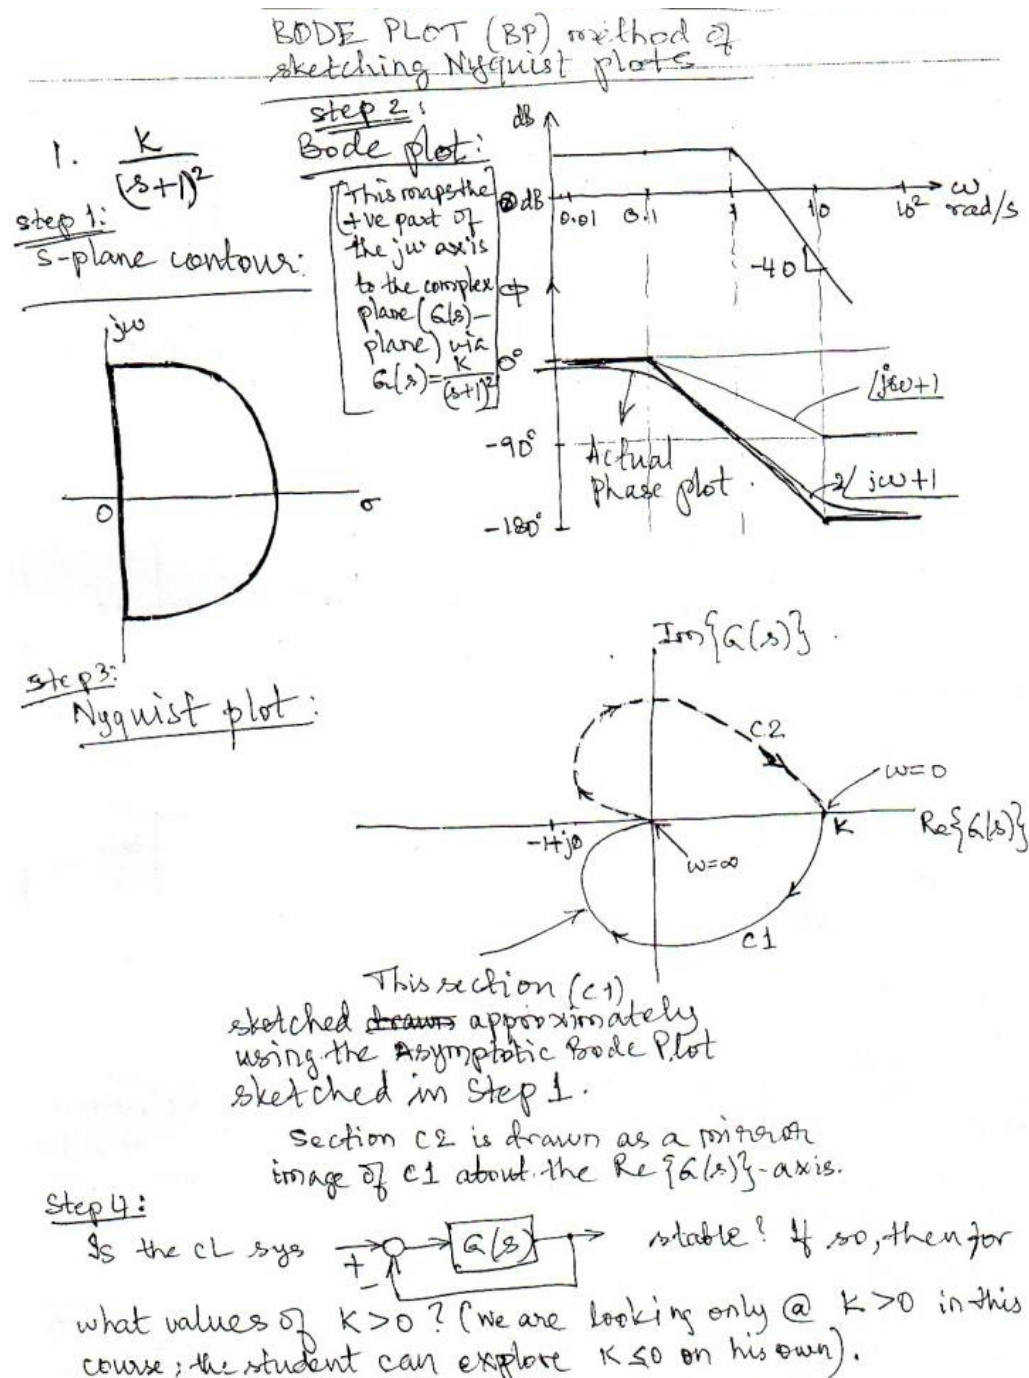 BODE PLOT (BP) method of
sketching Nyquist plots
1. K
(s+1)²
step 1:
s-plane contour:
jω
0
σ
step 2:
Bode plot:
[This maps the
+ve part of
the jω axis
to the complex
plane (G(s)-
plane) via
G(s)=K
(s+1)²]
dB
0 dB
0.01 0.1 1 10 10² ω
rad/s
-40
ϕ
0°
-90°
-180°
∠jω+1
2∠jω+1
Actual
Phase plot.
step 3:
Nyquist plot:
Im{G(s)}
C2
ω=0
-1+j0
K
Re{G(s)}
ω=∞
C1
This section (C1)
sketched drawn approximately
using the Asymptotic Bode Plot
sketched in Step 1.
Section C2 is drawn as a mirror
image of C1 about the Re{G(s)}-axis.
Step 4:
Is the CL sys + - G(s) stable? If so, then for
what values of K>0? (we are looking only @ K>0 in this
course; the student can explore K≤0 on his own).